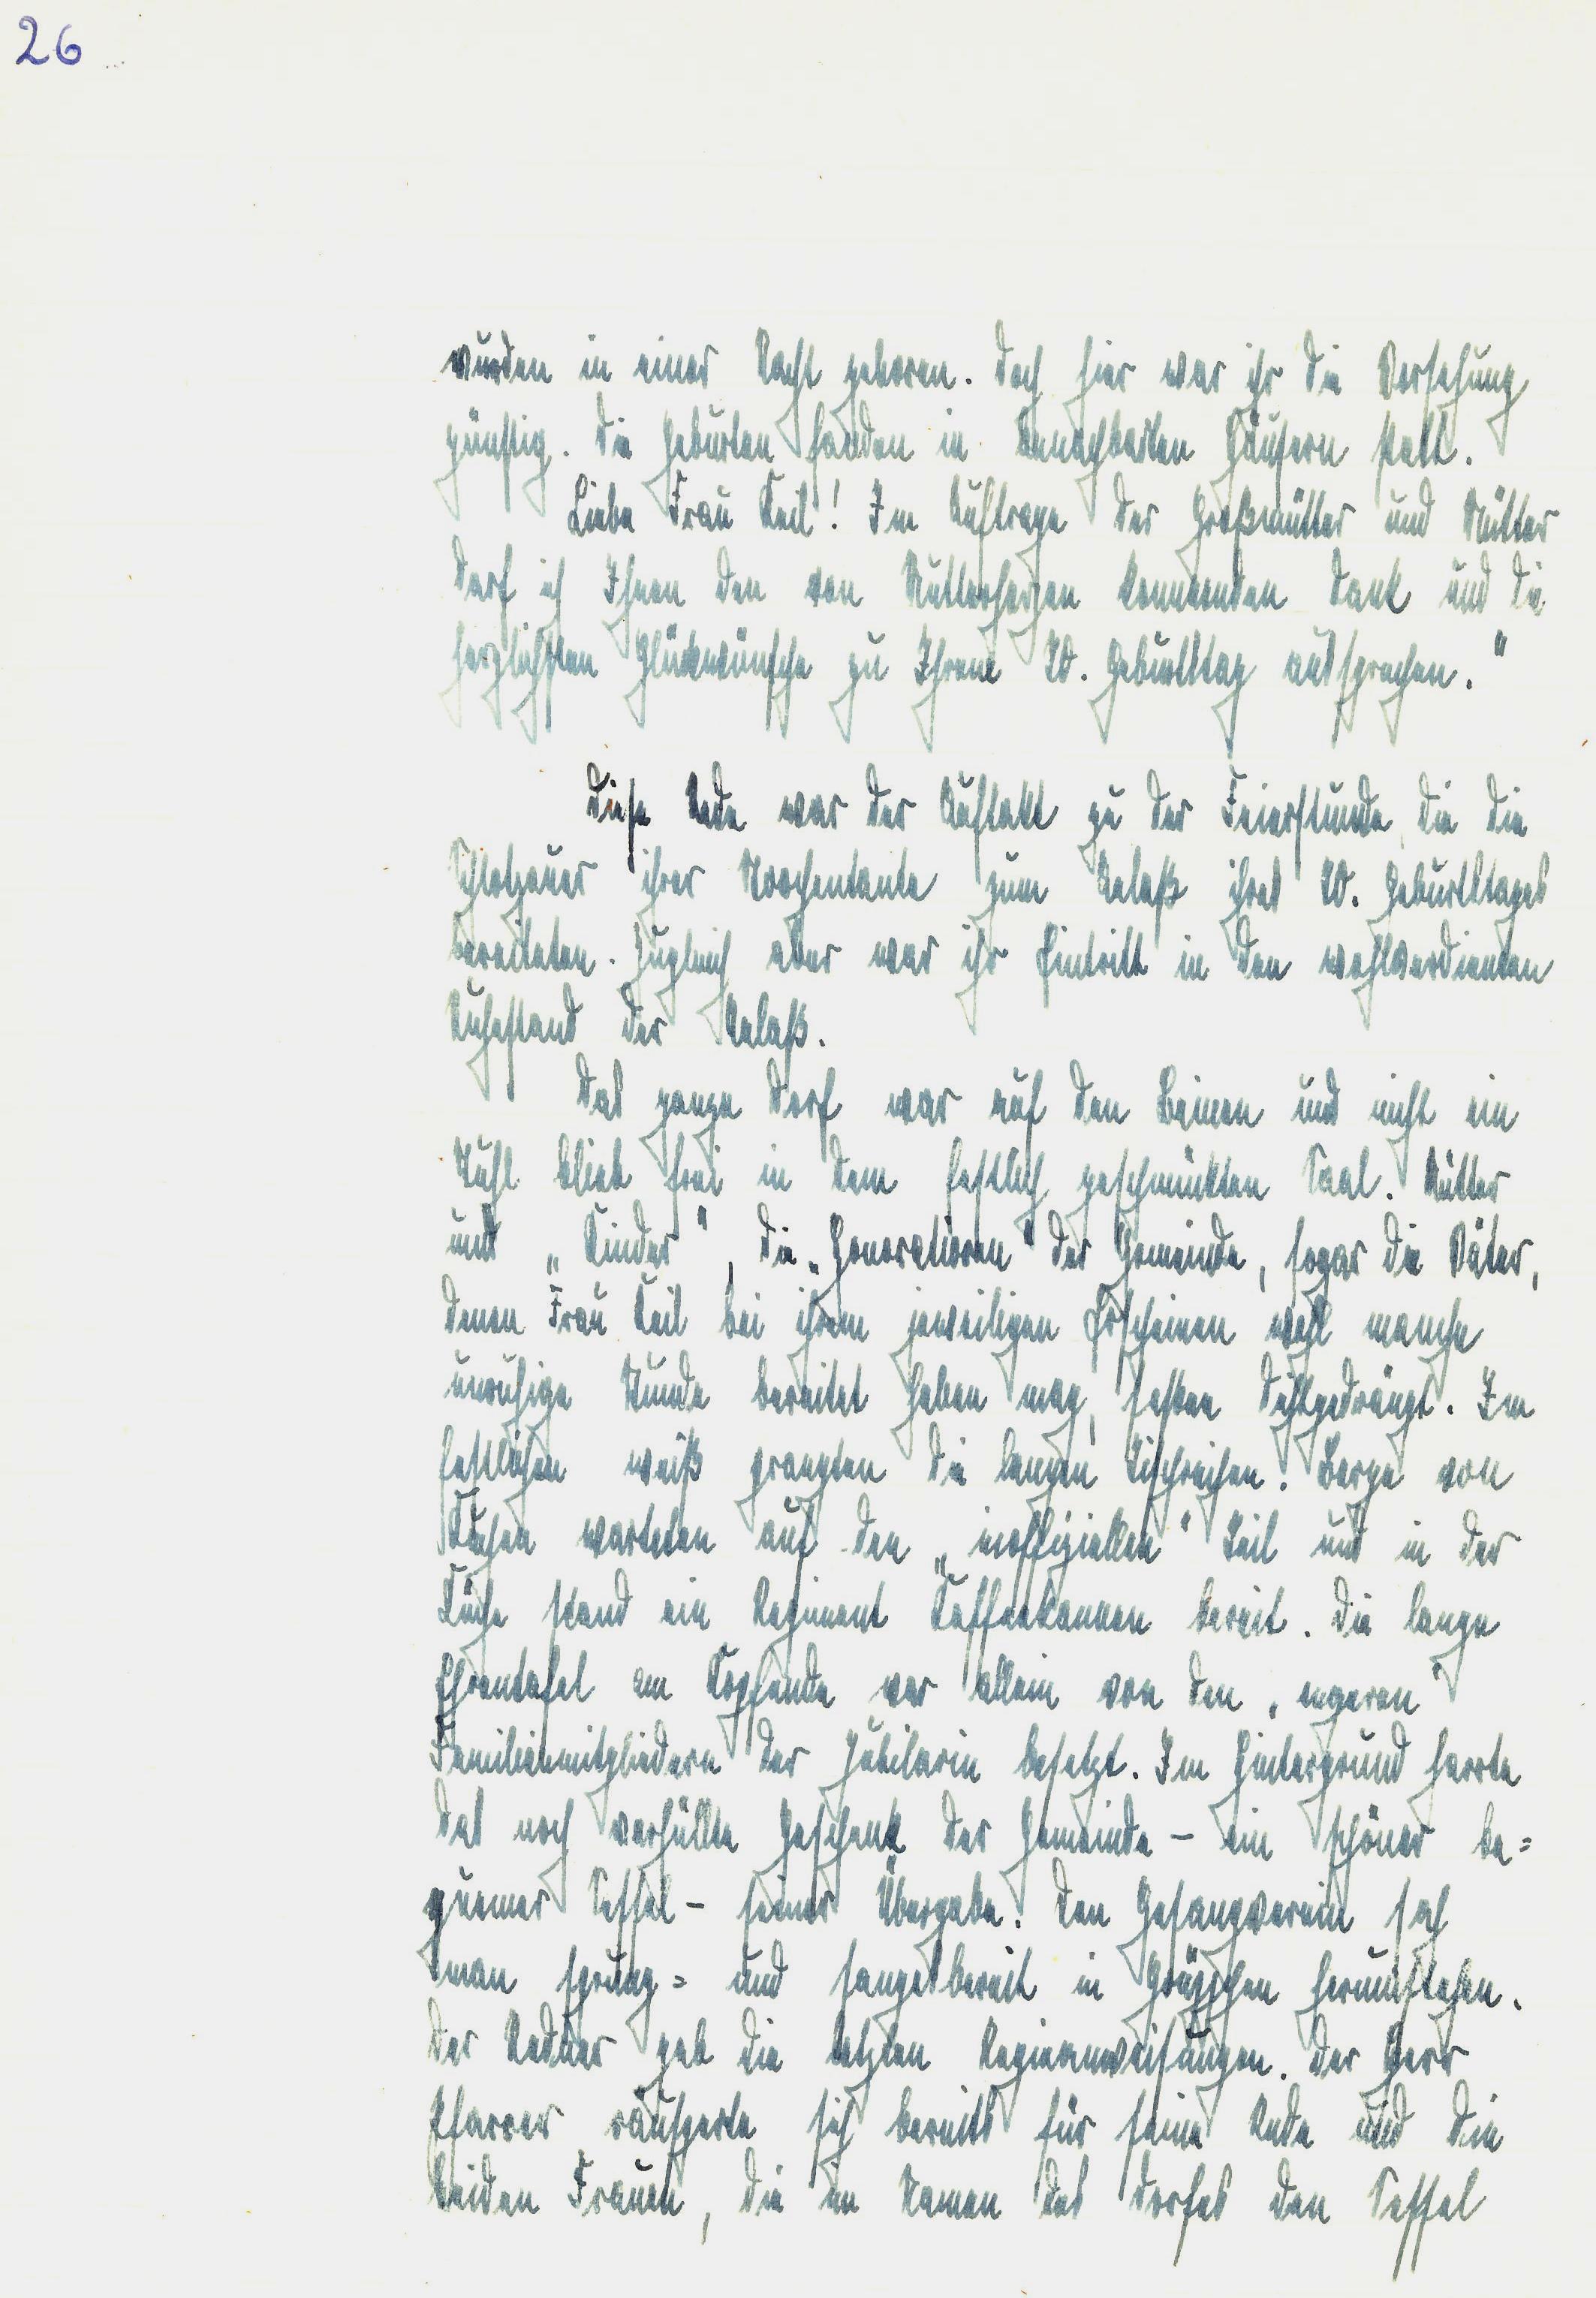 26
wurden in einer Nacht geboren. Doch hier war ihr die Vorsehung
günstig. Die Geburten fanden in benachbarten Häusern statt.
Liebe Frau Keil! Im Auftrage der Großmütter und Mütter
darf ich Ihnen den von Mutterherzen kommenden Dank und die
herzlichsten Glückwünsche zu Ihrem 70. Geburtstag aussprechen."
Diese Rede war der Auftakt zu der Feierstunde, die die
Schlotzauer ihrer Moochentante zum Anlaß ihres 70. Geburtstages
bereiteten. Zugleich aber war ihr Eintritt in den wohlverdienten
Ruhestand der Anlaß.
Das ganze Dorf war auf den Beinen und nicht ein
Stuhl blieb frei in dem festlich geschmückten Saal. Mütter
und „Kinder", die „Honoratioren" der Gemeinde, sogar die Väter,
denen Frau Keil bei ihrem jeweiligen Erscheinen wohl manche
unruhige Stunde bereitet haben mag, saßen dichtgedrängt. Im
festlichen weiß prangten die langen Tischreihen. Berge von
Kuchen warteten auf den „inoffiziellen" Teil und in der
Küche stand ein Regiment Kaffeekannen bereit. Die lange
Ehrentafel am Kopfende war allein von den „engeren"
Familienmitgliedern der Jubilarin besetzt. Im Hintergrund harrte
das noch verhüllte Geschenk der Gemeinde – ein schöner be=
quemer Sessel – seiner Übergabe. Den Gesangverein sah
man sprung= und sangesbereit in Grüppchen herumstehen.
Der Redner gab die letzten Regieanweisungen. Der Herr
Pfarrer räusperte sich bereits für seine Rede und die
beiden Frauen, die im Namen des Dorfes den Sessel